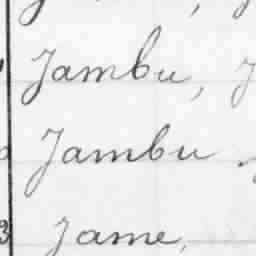 Jambu,
Jambu
Jame,